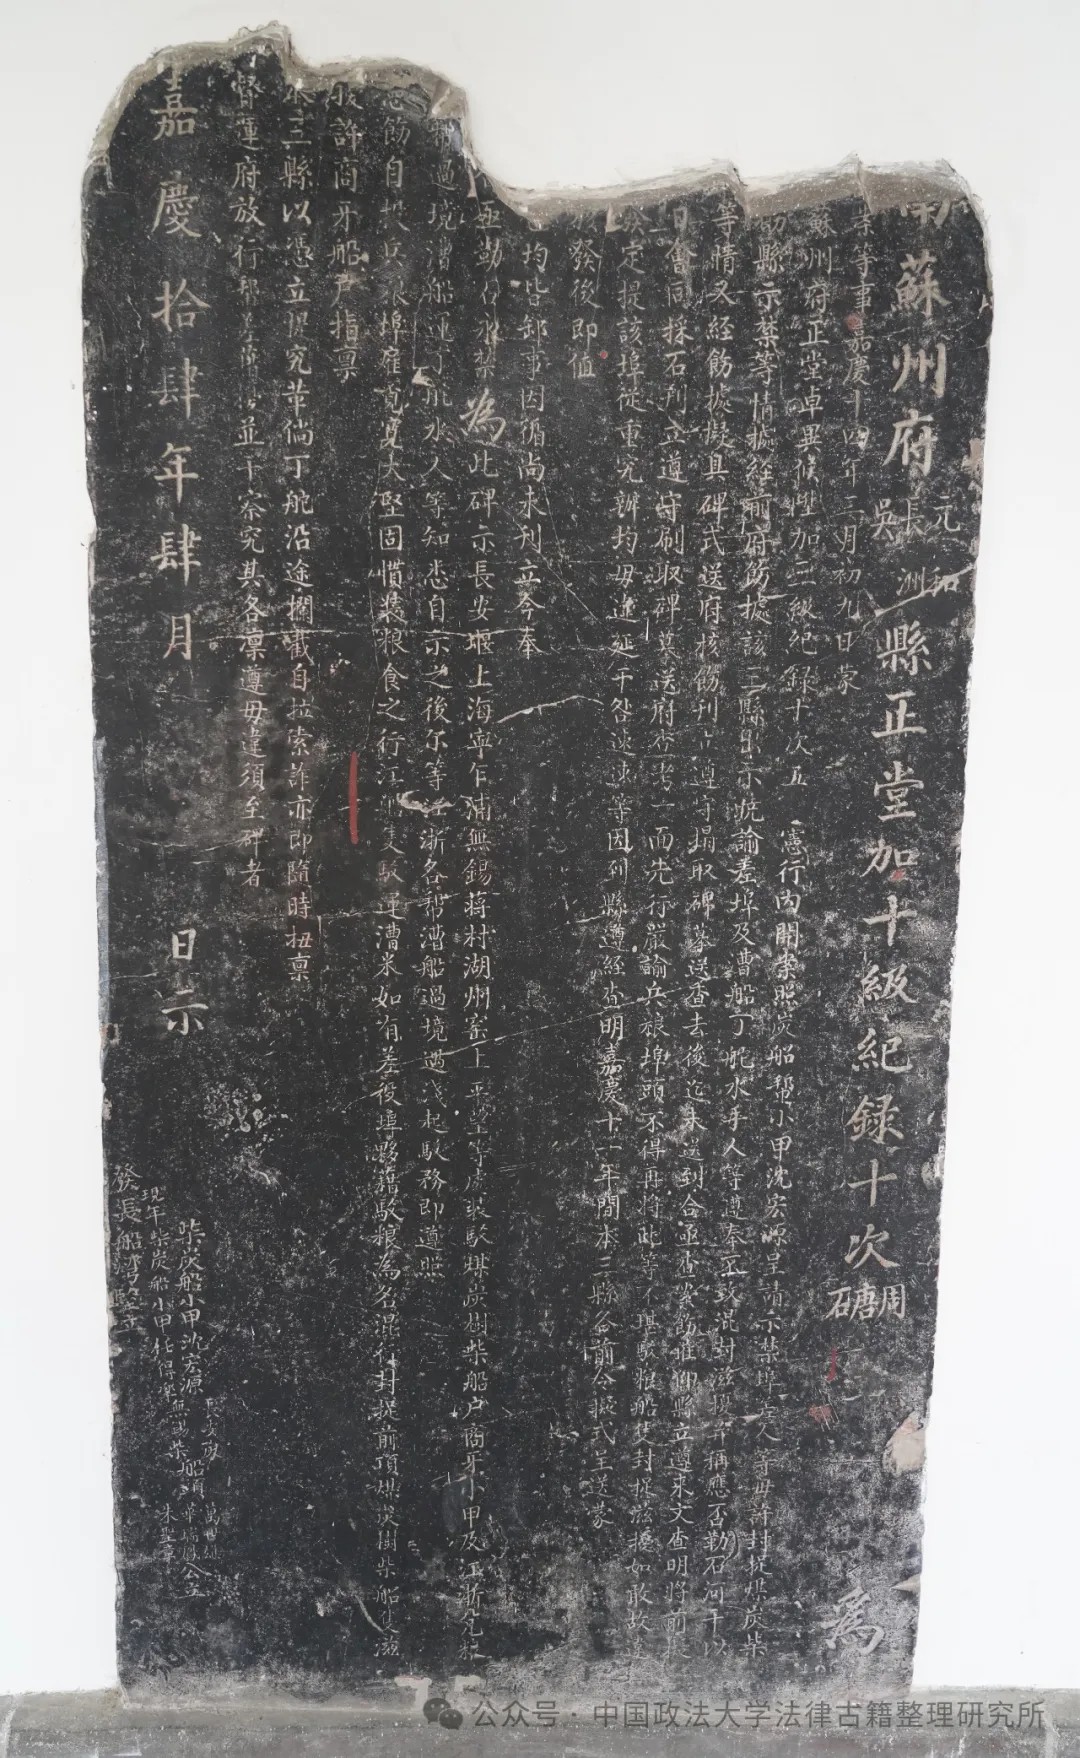 蘇州府元和長洲吳縣正堂加十級紀錄十次周 為
禁等事嘉慶十四年三月初九日蒙
蘇州府正堂卓異候陞加三級紀錄十次五 憲行內開案照炭船幫小甲沈宏源呈請示禁埠差人等毋許封捉煤炭柴
縣示禁等情據經前府飭據該三縣出示曉諭差埠及漕船丁舵水手人等遵奉 混封滋擾 稱應否勒石河干以
等情又經飭據擬具碑式送府核飭刊立遵守搨取碑摹送查去後迄未送到合亟查案飭催仰縣立遵來文查明將前
日會同採石刊立遵守刷取碑摹送府查考一面先行嚴諭兵糧埠頭不得再將此等不堪駁糧船隻封捉滋擾如敢故
定提該埠從重究辦均毋違延干咎速速等因到縣遵經查明嘉慶十一年間本三縣各前令擬式呈送蒙
發後即值
均皆卸事因循尚未刊立今奉
亟勒石永禁為此碑示長安壩上海寧乍浦無錫蔣村湖州窰上平望等處裝駁煤炭樹柴船户商牙小甲及江浙
過境漕船運丁舵水人等知悉自示之後尔等江浙各幫漕船過境遇淺起駁務即遵照
飭自投兵糧埠雇覓寬大堅固慣裝粮食之行江船隻駁運漕米如有差役埠夥藉駁粮為名混行封捉前項煤炭樹柴船隻滋
般許商牙船户指稟
三縣以憑立提究革倘丁舵沿途攔截自拉索詐亦即隨時扭稟
督運府放行幫 並干察究其各凛遵毋違須至碑者
嘉慶拾肆年肆月 日示
柴炭船小甲沈宏源
現年柴炭船小甲 無 柴船頭 朱聖章 公立
發長船
公众号·中国政法大学法律古籍整理研究所